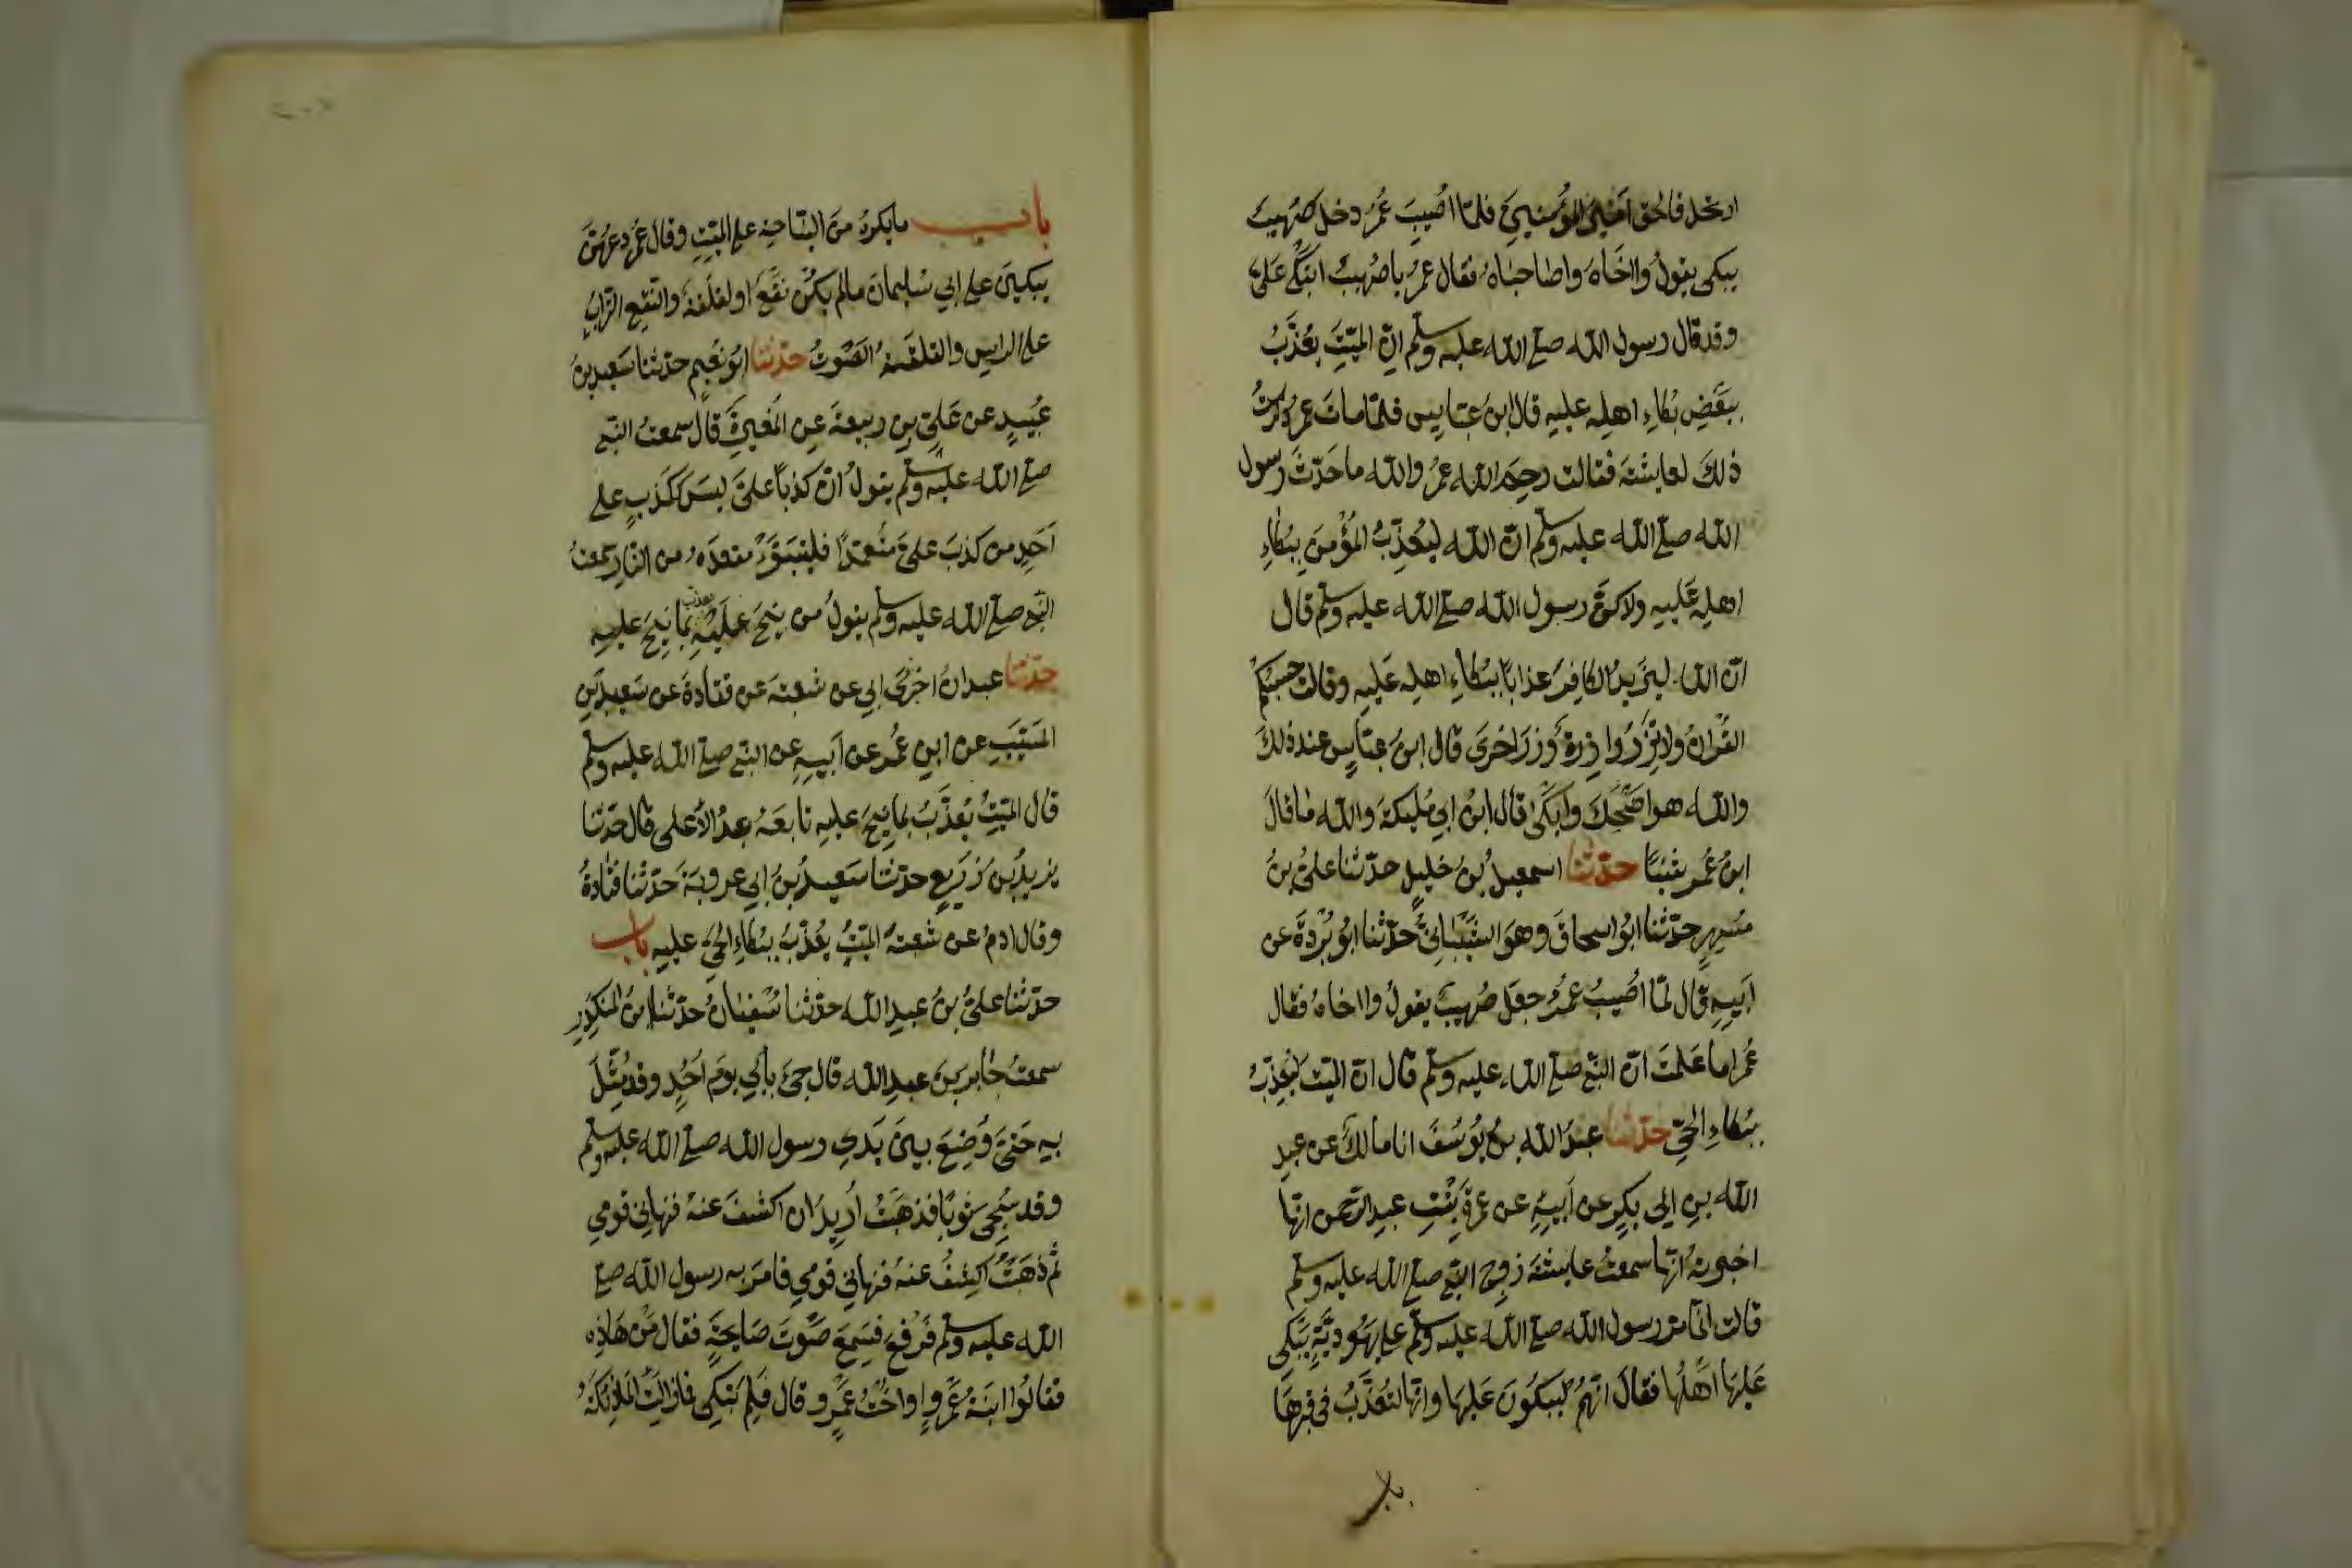 ارتحل فالحق امير المؤمنين فلمّا اُصيبَ عُمَرُ دخل صُهيبٌ
يبكى يقولُ وااَخَاهُ واصاحباهُ فقال عمرُ ياصُهيبُ اَتبكي عَلىَّ
وقد قال رسول الله صلى الله عليه وسلم انّ الميّتَ يُعَذَّبُ
ببَعْضِ بُكاءِ اهلِه عليهِ قال ابنُ عبّاسٍ فلمّا ماتَ عمرُ ذكرتُ
ذٰلكَ لعايشة فقالت رحِمَ الله عمرُ والله ما حَدّثَ رسول
الله صلى الله عليه وسلم انّ الله ليُعَذّبُ المُؤْمنَ ببُكاءِ
اهلِه عَلَيهِ ولاكنَّ رسول الله صلى الله عليه وسلم قال
انّ الله ليَزيدُ الكافِرَ عذابًا ببُكاءِ اهلِه عَلَيهِ وقالت حسبُكمُ
القُرانُ ولا تزرُ وازرةٌ وِزرَ اخرىَ قال ابنُ عبّاسٍ عند ذلكَ
والله هو اضْحَكَ وَابكَىٰ قال ابنُ ابي مُليكةَ والله ما قالَ
ابنُ عُمر شيئًا حدّثنا اسمعيلُ بنُ خليلٍ حدّثنا علىُّ بنُ
مُسهِرٍ حدّثنا ابوُ اسحاقَ وهوَ الشَّيْبانىُّ حدّثنا ابوُ بُرْدةَ عن
اَبيهِ قال لمّا اُصيبُ عمرُ جعلَ صُهيبٌ يقولُ وااخاهُ فقال
عُمر اما عَلمتَ انّ النبي صلى الله عليه وسلم قال انّ الميّت ليُعَذّبُ
ببُكاءِ الحىِّ حدّثنا عبدُ الله بنُ يوُسُفَ انا مالكٌ عن عبدِ
الله بنِ ابى بكرٍ عن اَبيهِ عن عمرةَ بِنْتِ عبدِ الرّحمن انّها
اخبرتهُ انّها سمعتْ عايشةَ زوجَ النبي صلى الله عليه وسلم
قالت انّما مرّ رسول الله صلى الله عليه وسلم على يهُوديّةٍ يَبكى
عَليهَا اَهْلُها فقالَ انّهمُ ليَبكُونَ عَليهَا وانّها لتُعَذَّبُ فى قبرهَا
باب
باب ما يكرهُ منَ النياحة على الميّتِ وقال عُمرُ دعْهُنَّ
يبكينَ على ابي سُليمانَ مالم يكنْ نَقْعٌ اولقلقةٌ والنّقعِ الترابُ
على الراسِ واللقلقةُ الصّوتُ حدّثنا ابوُ نُعيمٍ حدّثنا سَعيدُ بنُ
عُبيدٍ عن عَلىِّ بنِ ربيعةَ عنِ المُغيرةِ قال سمعتُ النبي
صلى الله عليه وسلم يقولُ انّ كذبًا علىَّ ليسَ ككَذبٍ على
اَحَدٍ من كذبَ علىَّ مُتعمّدًا فليتبوّءْ مقعدَهُ من النّار سمعتُ
النبي صلى الله عليه وسلم يقولُ من نِيحَ عَليْهِ يعذب بما نِيحَ عليهِ
حدّثنا عبدانُ اخبرنى ابي عن شعبةَ عن قتادةَ عن سَعيدِ بنِ
المسَيّبِ عن ابنِ عُمر عن اَبيهِ عن النبي صلى الله عليه وسلم
قال الميّتُ يُعَذَّبُ بمَا نِيحَ عليهِ تابعَهُ عبدُ الاَعلى قال حدّثنا
يزيدُ بنُ زُرَيعٍ حدّثنا سَعيدُ بنُ ابي عروبةَ حدّثنا قتادةُ
وقال ادمُ عن شعبةَ الميّتُ يُعَذَّبُ ببُكاءِ الحىِّ عليهِ باب
حدّثنا علىُّ بنُ عبدِ الله حدّثنا سُفيٰانُ حدّثنا ابنُ المنكَدِرِ
سمعتُ جابرَ بنَ عبدِ الله قال جىَ بابي يومَ اُحُدٍ وقد مُثِّلَ
بهِ حَتىّ وُضِعَ بينَ يَدي رسول الله صلى الله عليه وسلم
وقد سُجّىَ ثوبًا فذهبْتُ اُريدُ ان اكشفَ عنهُ فنهاني قومي
ثم ذهَبْتُ اكشِفُ عنهُ فنهاني قومي فامرَ به رسول الله صلى
الله عليه وسلم فرُفعَ فسَمِعَ صوْتَ صَايحَةٍ فقال مَنْ هَاذِه
فقالوُا ابنَةُ عَمْروٍ او اختُ عَمْرٍو قال فلِمَ تبكِى فمازالتِ الملائكةُ